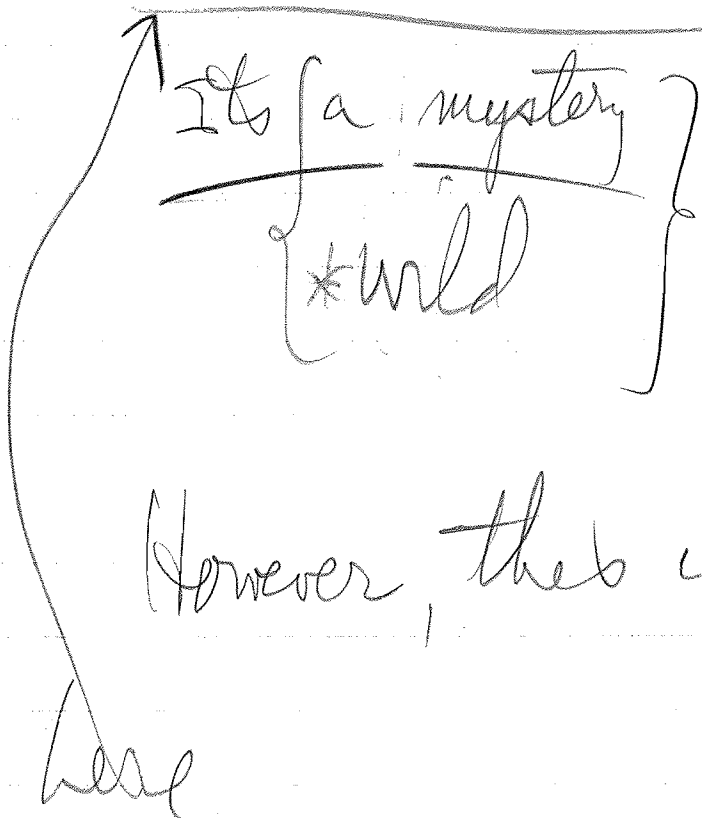 Its { a mystery }
{ *wild }
However, this
here